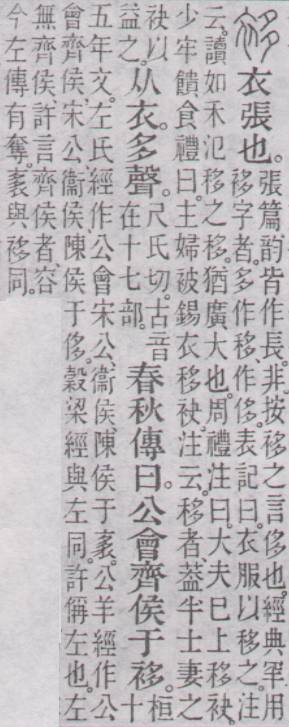 袳衣張也。張篇韵皆作長。非。按袳之言侈也。經典罕用
袳字者。多作移、作侈。表記曰。衣服以移之。注
云。讀如禾氾移之移。猶廣大也。周禮注曰。大夫巳上移袂。
少牢饋食禮曰。主婦被錫衣移袂。注云。移者。葢半士妻之
袂以益之。从衣。多聲。尺氏切。古音在十七部。春秋傳曰。公會齊侯于袳。桓十
五年文。左氏經作公會宋公、衞侯、陳侯于袲。公羊經作公
會齊侯、宋公、衞侯、陳侯于侈。穀梁經與左同。許偁左也。左
無齊侯。許言齊侯者、容
今左傳有奪。袲與袳同。